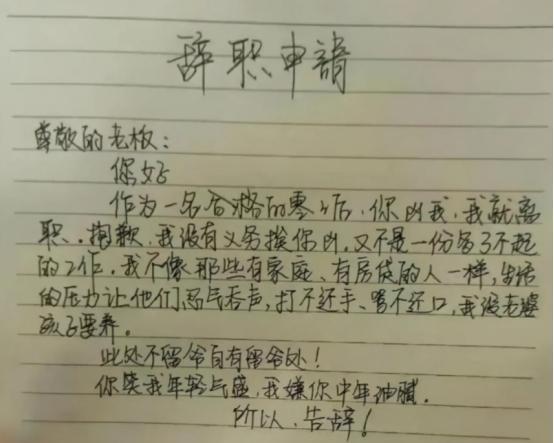 辞职申請
尊敬的老板：
你好
作为一名合格的零零后，你凶我，我就离
职。抱歉，我没有义务挨你凶，又不是一份多了不起
的工作，我不像那些有家庭、有房贷的人一样，生活
的压力让他们忍气吞声，打不还手、骂不还口，我没老婆
孩子要养。
此处不留爷自有留爷处！
你笑我年轻气盛，我嫌你中年油腻。
所以，告辞！